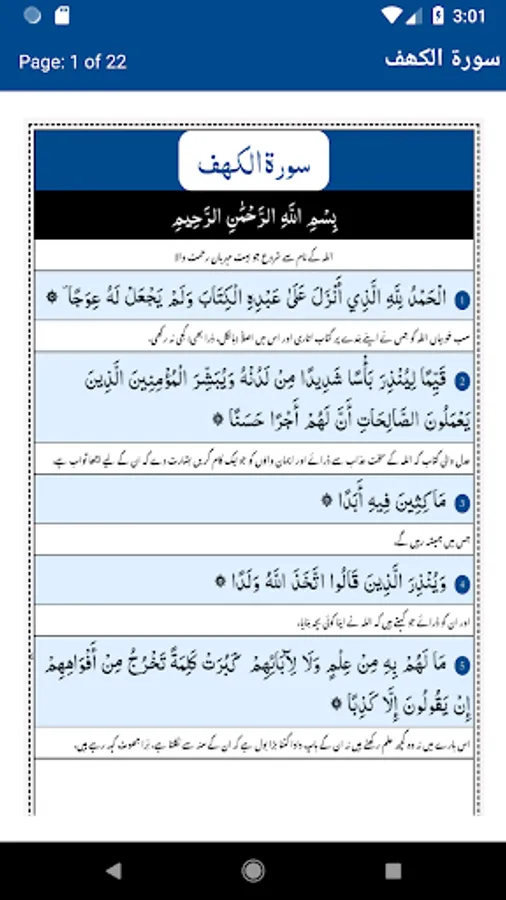 3:01
Page: 1 of 22
سورة الكهف
سورة الكهف
بِسْمِ اللَّهِ الرَّحْمَٰنِ الرَّحِيمِ
اللہ کے نام سے شروع جو بہت مہربان رحمت والا
1 الْحَمْدُ لِلَّهِ الَّذِي أَنْزَلَ عَلَىٰ عَبْدِهِ الْكِتَابَ وَلَمْ يَجْعَلْ لَهُ عِوَجًا ۜ ۞
سب خوبیاں اللہ کو جس نے اپنے بندے پر کتاب اتاری اور اس میں اصلاً (بالکل، ذرا بھی) کجی نہ رکھی،
2 قَيِّمًا لِيُنْذِرَ بَأْسًا شَدِيدًا مِنْ لَدُنْهُ وَيُبَشِّرَ الْمُؤْمِنِينَ الَّذِينَ
يَعْمَلُونَ الصَّالِحَاتِ أَنَّ لَهُمْ أَجْرًا حَسَنًا ۞
عدل والی کتاب کہ اللہ کے سخت عذاب سے ڈرائے اور ایمان والوں کو جو نیک کام کریں بشارت دے کہ ان کے لیے اچھا ثواب ہے،
3 مَاكِثِينَ فِيهِ أَبَدًا ۞
جس میں ہمیشہ رہیں گے،
4 وَيُنْذِرَ الَّذِينَ قَالُوا اتَّخَذَ اللَّهُ وَلَدًا ۞
اور ان کو ڈرائے جو کہتے ہیں کہ اللہ نے اپنا کوئی بچہ بنایا،
5 مَا لَهُمْ بِهِ مِنْ عِلْمٍ وَلَا لِآبَائِهِمْ ۚ كَبُرَتْ كَلِمَةً تَخْرُجُ مِنْ أَفْوَاهِهِمْ ۚ
إِنْ يَقُولُونَ إِلَّا كَذِبًا ۞
اس بارے میں نہ وہ کچھ علم رکھتے ہیں نہ ان کے باپ دادا، کتنا بڑا بول ہے کہ ان کے منہ سے نکلتا ہے، نِرا جھوٹ کہہ رہے ہیں،